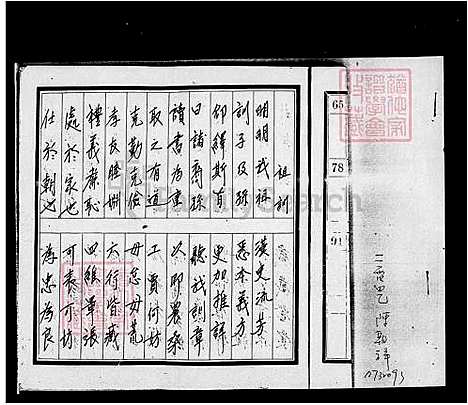 祖訓
明明我祖 漢史流芳
訓子及孫 悉本義方
仰繹斯旨 更加推詳
曰諸裔孫 聽我訓章
讀書為重 以即農桑
取之有道 工賈何妨
克勤克儉 毋怠毋荒
孝友睦婣 六行皆臧
禮義廉恥 四維畢張
處於家也 可表可坊
仕於朝也 為忠為良
65
78
91